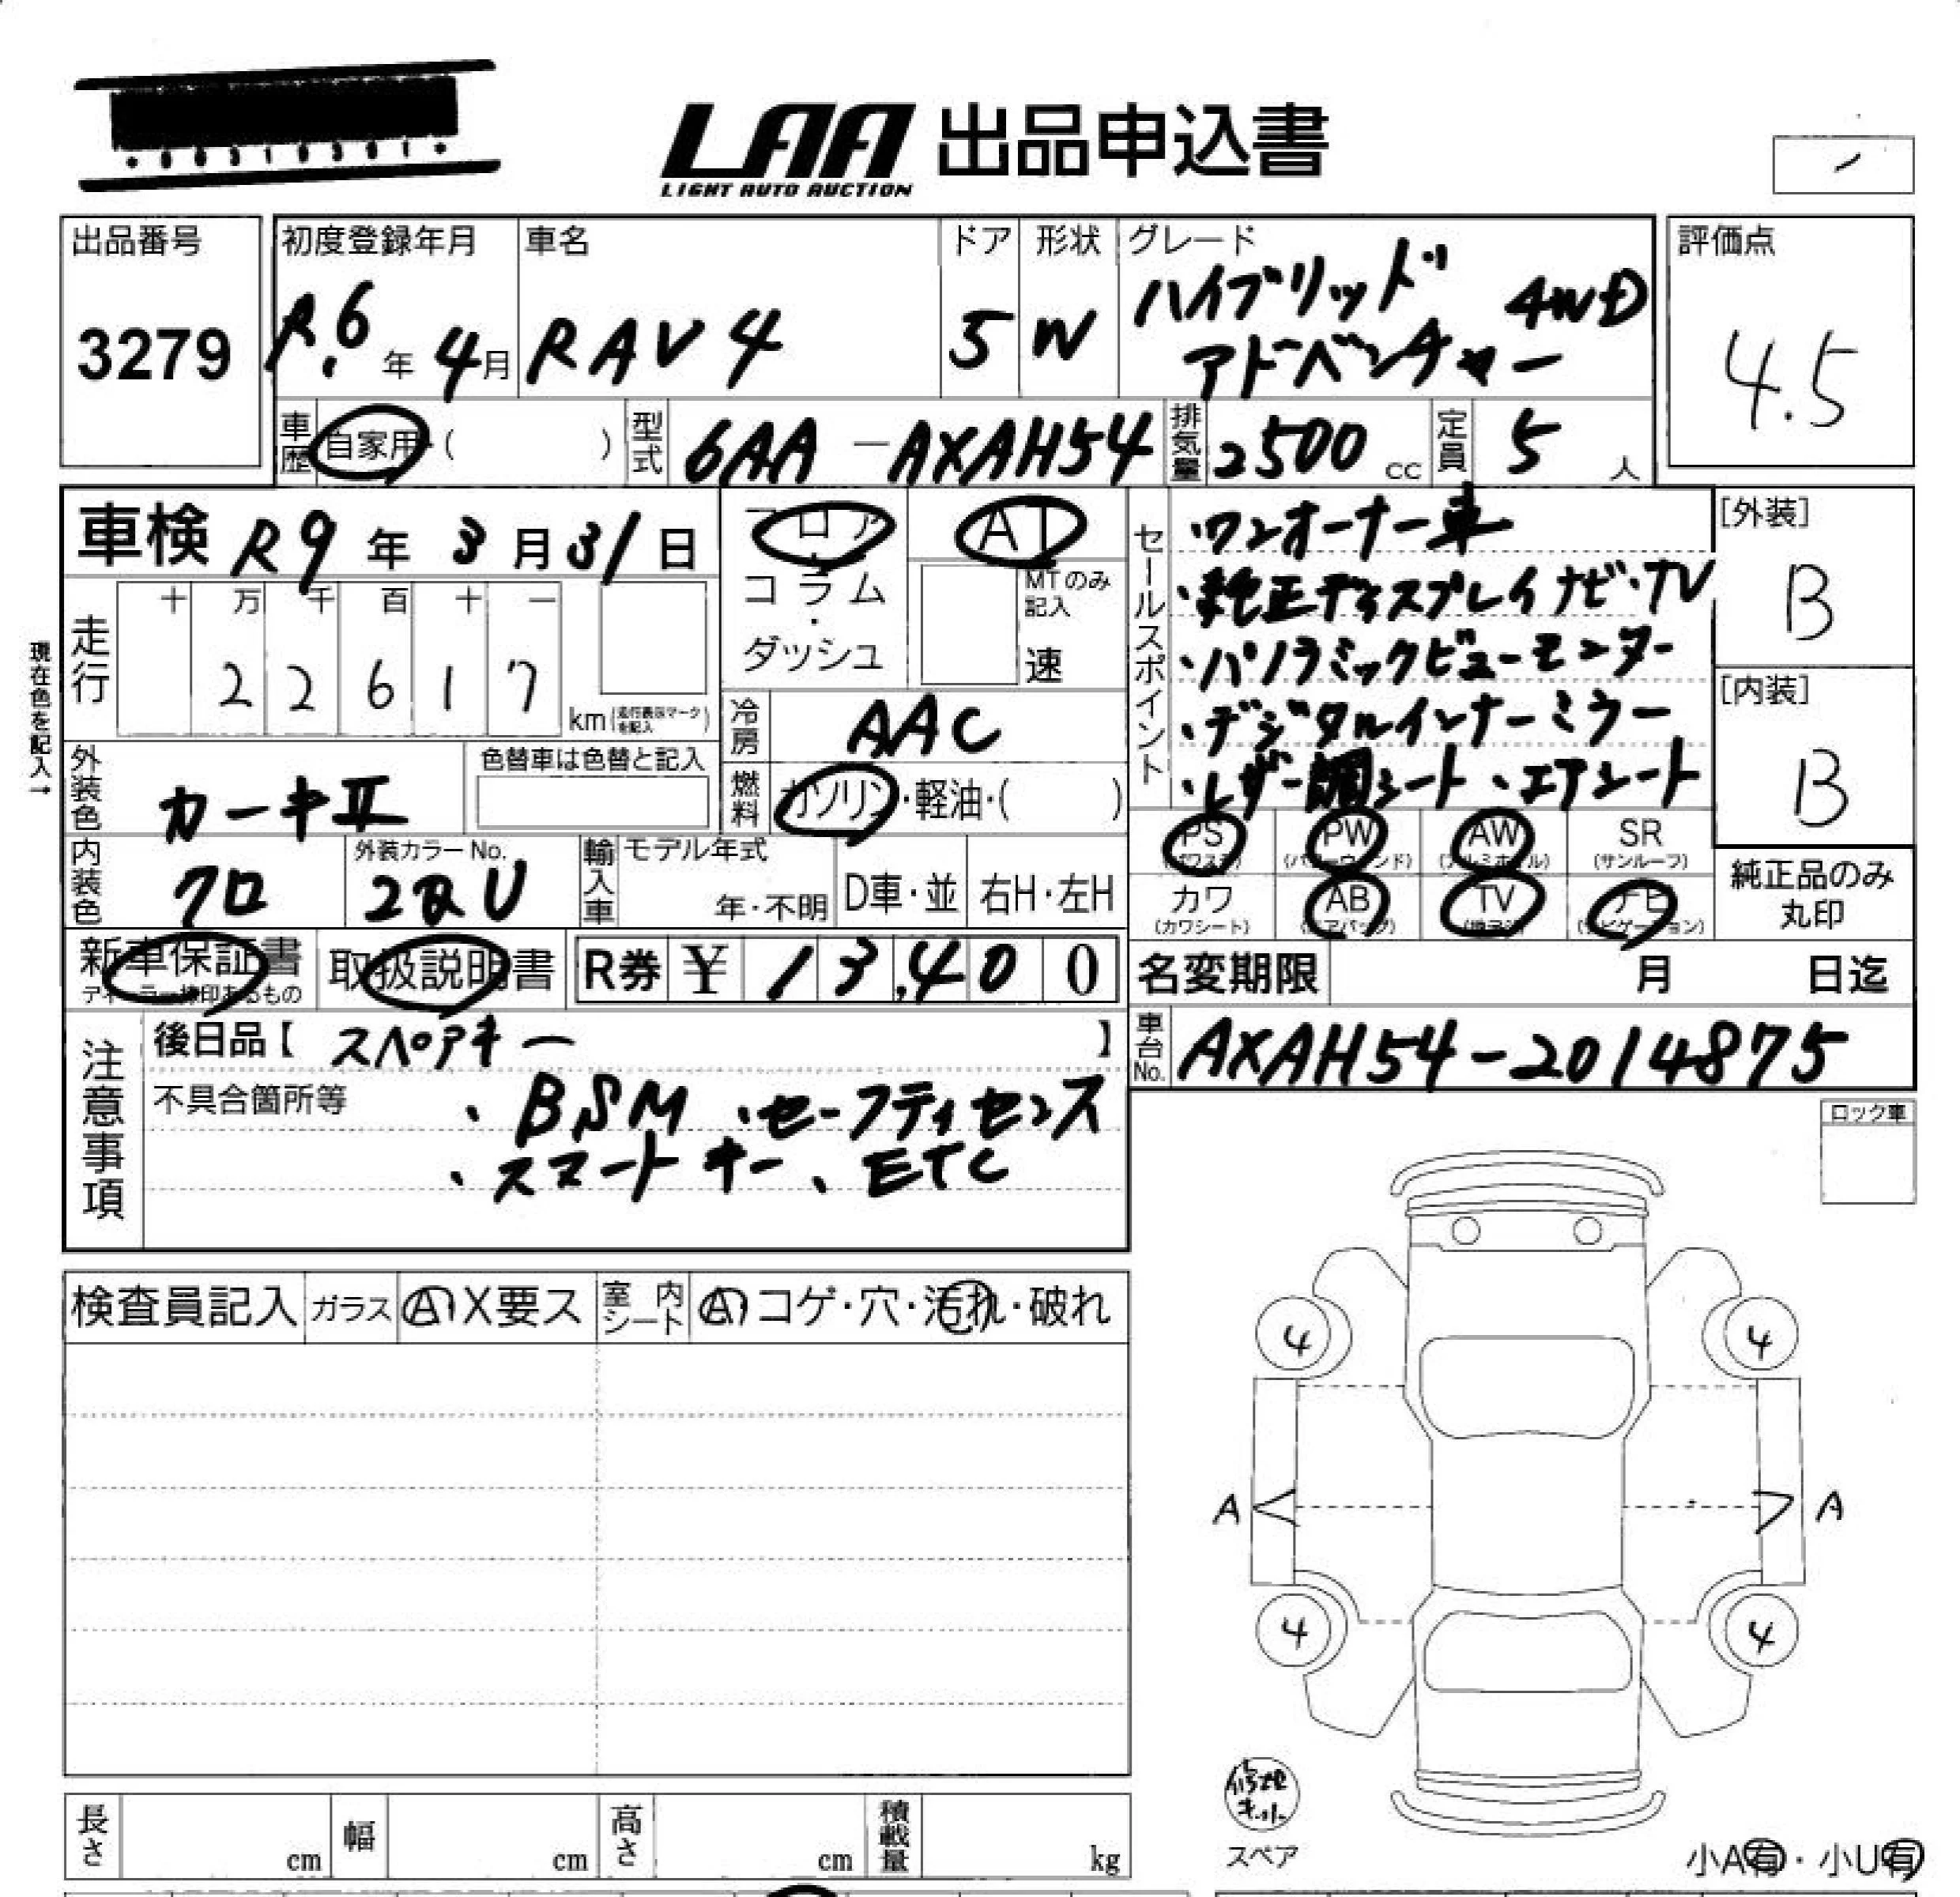 LAA 出品申込書
LIGHT AUTO AUCTION
出品番号
3279
初度登録年月
R.6年4月
車名
RAV4
ドア
5
形状
W
グレード
ハイブリッド 4WD
アドベンチャー
評価点
4.5
車歴
自家用・( )
型式
6AA-AXAH54
排気量
2500cc
定員
5人
車検 R9年3月31日
フロア・コラム・ダッシュ
AT
MTのみ記入
速
現在色を記入→
走行
十 万 千 百 十 一
2 2 6 1 7
km(走行表示マークを記入)
冷房
AAC
外装色
カーキⅡ
色替車は色替と記入
燃料
ガソリン・軽油・( )
内装色
クロ
外装カラーNo.
2QU
輸入車
モデル年式
年・不明
D車・並
右H・左H
セールスポイント
・ワンオーナー車
・純正ディスプレイナビ・TV
・パノラミックビューモニター
・デジタルインナーミラー
・レザー調シート ・エアシート
[外装]
B
[内装]
B
PS PW AW SR
(パワステ) (パワーウインド) (アルミホイル) (サンルーフ)
カワ AB TV ナビ
(カワシート) (エアバッグ) (ナビゲーション)
純正品のみ
丸印
新車保証書
ディーラー捺印あるもの
取扱説明書
R券 ¥13,400
名変期限 月 日迄
車台No.
AXAH54-2014875
注意事項
後日品【 スペアキー 】
不具合箇所等
・BSM ・セーフティセンス
・スマートキー、ETC
ロック車
検査員記入
ガラス
A X要ス
室内シート
A コゲ・穴・汚れ・破れ
4 4
A A
4 4
修理キット
スペア
小A有・小U有
長さ cm
幅 cm
高さ cm
積載量 kg